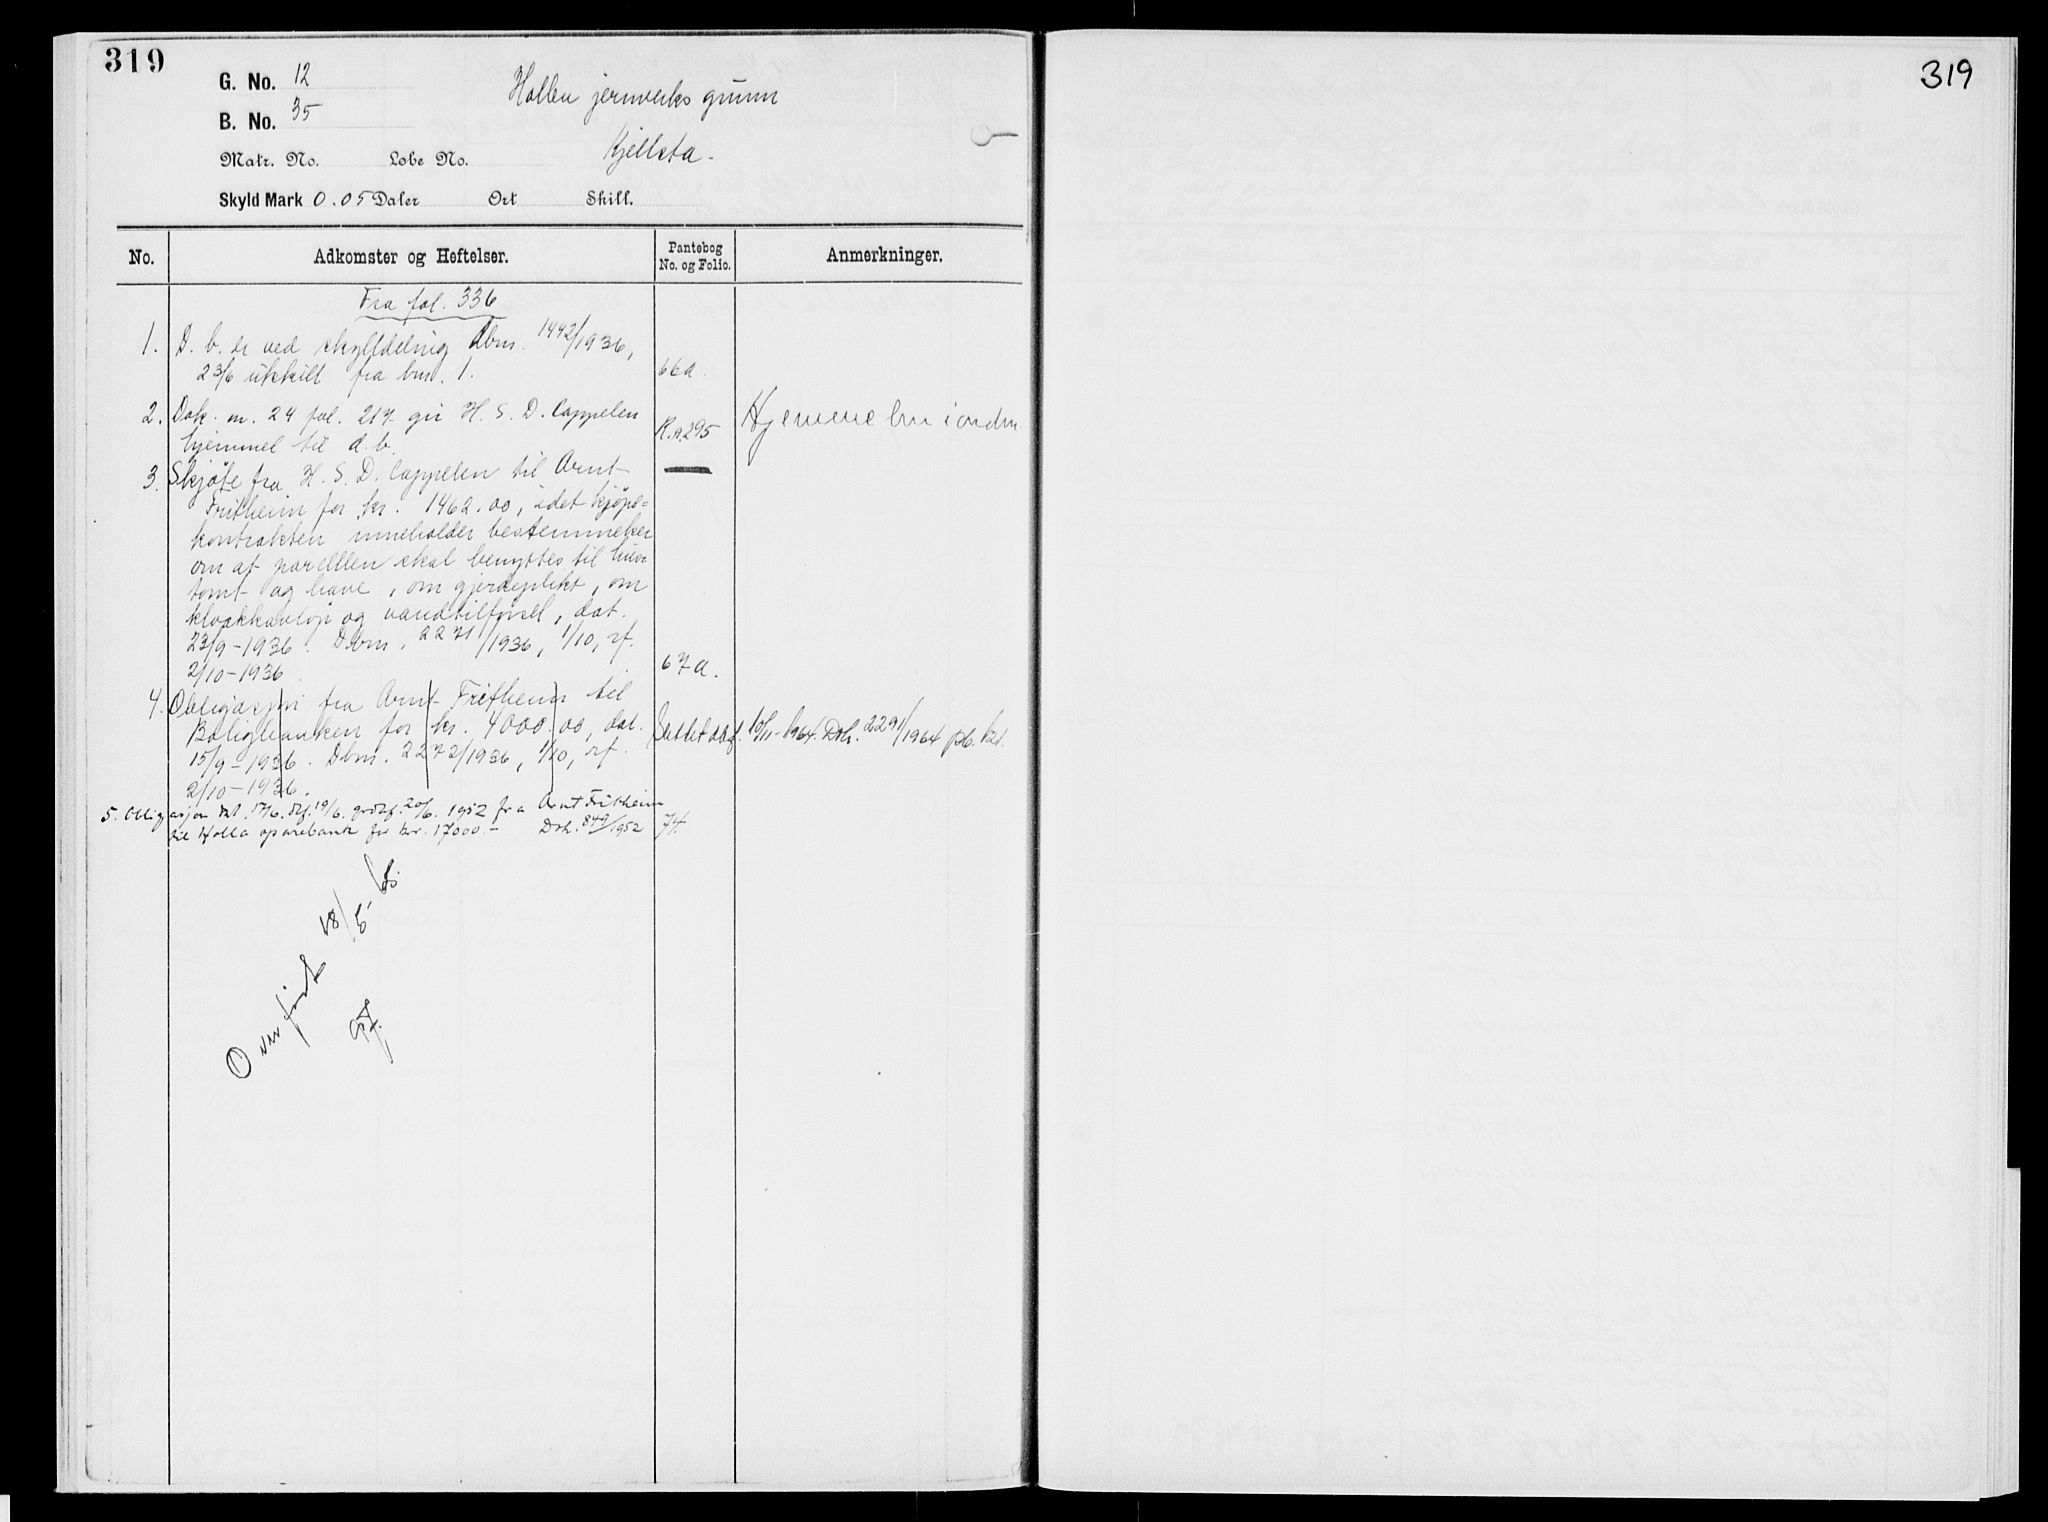 319
319
G. No. 12
Hollen jernverks grunn
B. No. 35
Kjellsta.
Matr. No. Løbe No.
Skyld Mark 0.05 Daler Ort Skill.
No. Adkomster og Heftelser. Pantebog No. og Folio. Anmerkninger.
Fra fol. 336
1. D. b. er ved skylddeling dbnr. 1442/1936,
23/6 utskilt fra bnr. 1. 66a.
2. Dok. m. 24 fol. 217 gir H. S. D. Cappelen R.a.295
hjemmel til d. b.
Hjemmelen i orden
3. Skjøte fra H. S. D. Cappelen til Arnt
Fritheim for kr. 1462.00, idet kjøpe=
kontrakten inneholder bestemmelser
om at parcellen skal benyttes til hus
tomt og have, om gjerdeplikt, om
kloakkavløp og vandtilførsel, dat.
23/9-1936. Dbnr. 2271/1936, 1/10, rf.
2/10-1936. 67a.
4. Obligasjon fra Arnt Fritheim til
Boligbanken for kr. 4000.00, dat.
15/9-1936. Dbnr. 2272/1936, 1/10, rf.
2/10-1936.
Slettet dbf. 10/11-1964. Dnr. 2291/1964
5. Obligasjon dat. 17/6. dbf. 19/6. grbf. 20/6. 1952 fra Arnt Fritheim
til Holla sparebank for kr. 17000.- Dnr. 849/1952 74.
Overført 18/5-65